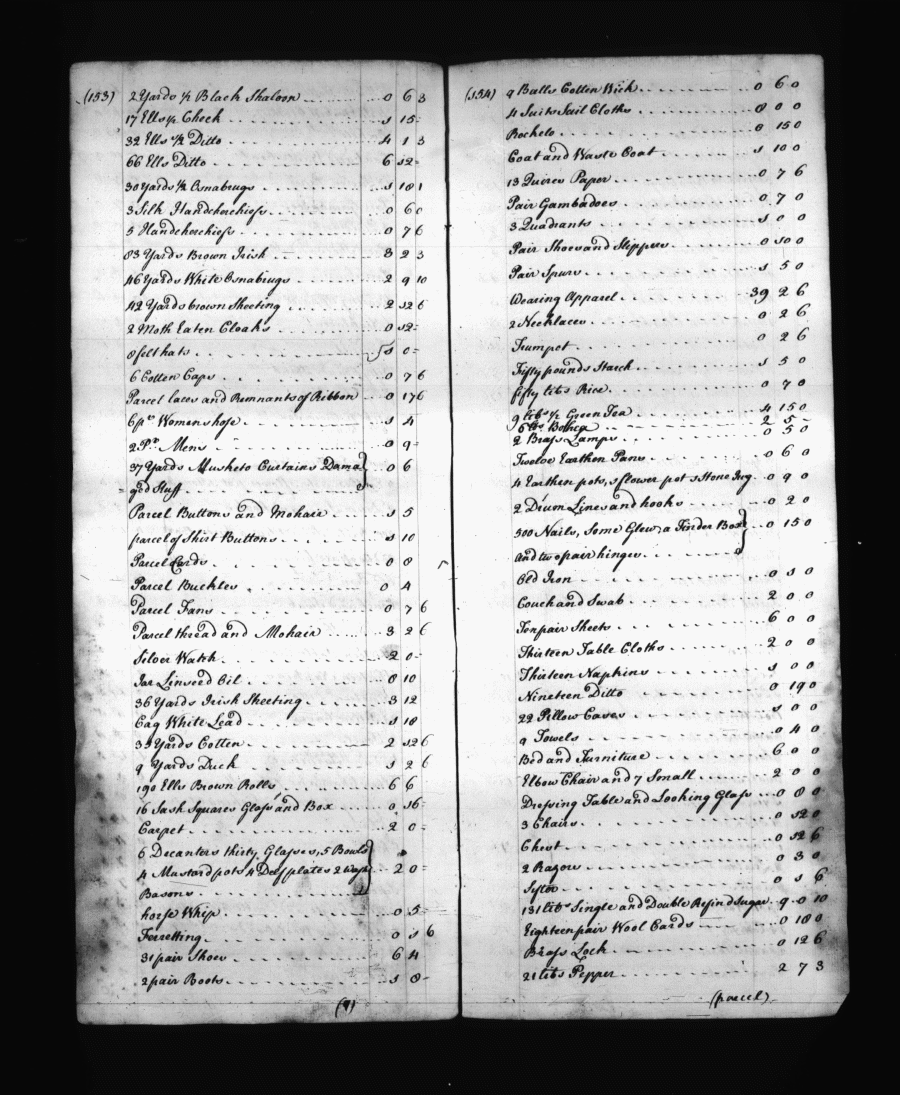 (153) 2 Yards ½ Black Shaloon 0 6 3
17 Ells ½ Check 1 15 -
32 Ells ½ Ditto 4 1 3
66 Ells Ditto 6 12 -
30 Yards ½ Osnabrugs 1 18 1
3 Silk Handcherchiefs 0 6 0
5 Handcherchiefs 0 7 6
83 Yards Brown Irish 8 2 3
46 Yards White Osnabrugs 2 9 10
42 Yards brown Sheeting 2 12 6
2 Moth Eaten Cloaks 0 12 -
8 felt hats 0 -
6 Cotten Caps 0 7 6
Parcel laces and Remnants of Ribbon 0 17 6
6 pr. Womens hose 1 4
2 Pr. Mens 0 9 -
37 Yards Musketo Curtains Dama 0 6
ged Stuff
Parcel Buttons and Mohair 1 5
parcel of Shirt Buttons 1 10
Parcel Cards 0 8
Parcel Buckles 0 4
Parcel Fans 0 7 6
Parcel thread and Mohair 3 2 6
Silver Watch 2 0 -
Jar Linseed Oil 0 10
36 Yards Irish Sheeting 3 12
Cag White Lead 1 18
35 Yards Cotten 2 12 6
9 Yards Duck 1 2 6
190 Ells Brown Rolls 6 6
16 Sash Squares Glass and Box 0 16 -
Carpet 2 0 -
6 Decanters thirty Glasses, 5 Bowls
4 Mustard pots 4 Delf plates 2 Wash 2 0 -
Basons
horse Whip 0 5 -
Ferretting 0 1 6
31 pair Shoes 6 4
2 pair Boots 1 8 -
(9)
(154) 9 Balls Cotten Wick 0 6 0
4 Suits Suil Cloths 8 0 0
Rochelo 0 15 0
Coat and Waste Coat 1 10 0
13 Quires Paper 0 7 6
Pair Gambadoes 0 7 0
3 Quadrants 1 0 0
Pair Shoes and Slippers 0 10 0
Pair Spurs 1 5 0
Wearing Apparel 39 2 6
2 Necklaces 0 2 6
Trumpet 0 2 6
Fifty pounds Starch 1 5 0
fifty libs Rice 0 7 0
9 libs ½ Green Tea 4 15 0
6 libs Bohea 2 5 -
2 Brass Lamps 0 5 0
Twelve Earthen Pans 0 6 0
4 Earthen pots, 1 flower pot 1 Stone Jug 0 9 0
2 Drum Lines and hooks 0 2 0
500 Nails, Some Glew, a Tinder Box 0 15 0
and two pair hinges
Old Iron 0 1 0
Couch and Swab 2 0 0
Ten pair Sheets 6 0 0
Thirteen Table Cloths 2 0 0
Thirteen Napkins 1 0 0
Nineteen Ditto 0 19 0
22 Pillow Cases 1 0 0
9 Towels 0 4 0
Bed and Furniture 6 0 0
Elbow Chair and 7 Small 2 0 0
Dressing Table and Looking Glass 0 8 0
3 Chairs 0 12 0
Chest 0 12 6
2 Razors 0 3 0
Sifter 0 1 6
131 libs Single and Double Refind Sugar 9 0 10
Eighteen pair Wool Cards 0 18 0
Brass Lock 0 12 6
21 libs Pepper 2 7 3
(parcel)